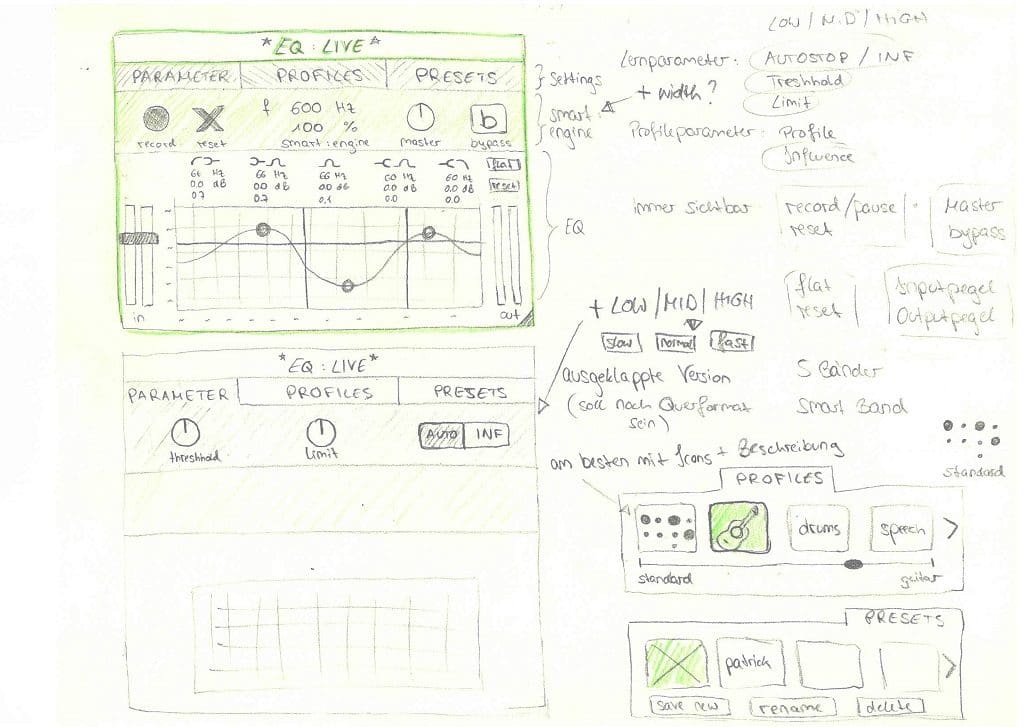 LOW / MID / HIGH
*EQ : LIVE*
PARAMETER
PROFILES
PRESETS
} Settings
smart:
engine
+ width?
Lernparameter: AUTOSTOP / INF
Treshhold
Limit
Profileparameter: Profile
Influence
record
reset
f 600 Hz
100 %
smart:engine
master
b
bypass
66 Hz
0.0 dB
0.7
66 Hz
0.0 dB
0.7
66 Hz
0.0 dB
0.1
60 Hz
0.0 dB
0.0
60 Hz
0.0 dB
0.0
flat
reset
EQ
in
out
immer sichtbar
record/pause
reset
Master
bypass
flat
reset
Inputpegel
Outputpegel
+ LOW/MID/HIGH
slow
normal
fast
ausgeklappte Version
(soll noch Querformat
sein)
5 Bänder
Smart Band
*EQ : LIVE*
PARAMETER
PROFILES
PRESETS
threshhold
Limit
AUTO
INF
am besten mit Icons + Beschreibung
standard
PROFILES
drums
speech
standard
guitar
PRESETS
patrick
save new
rename
delete